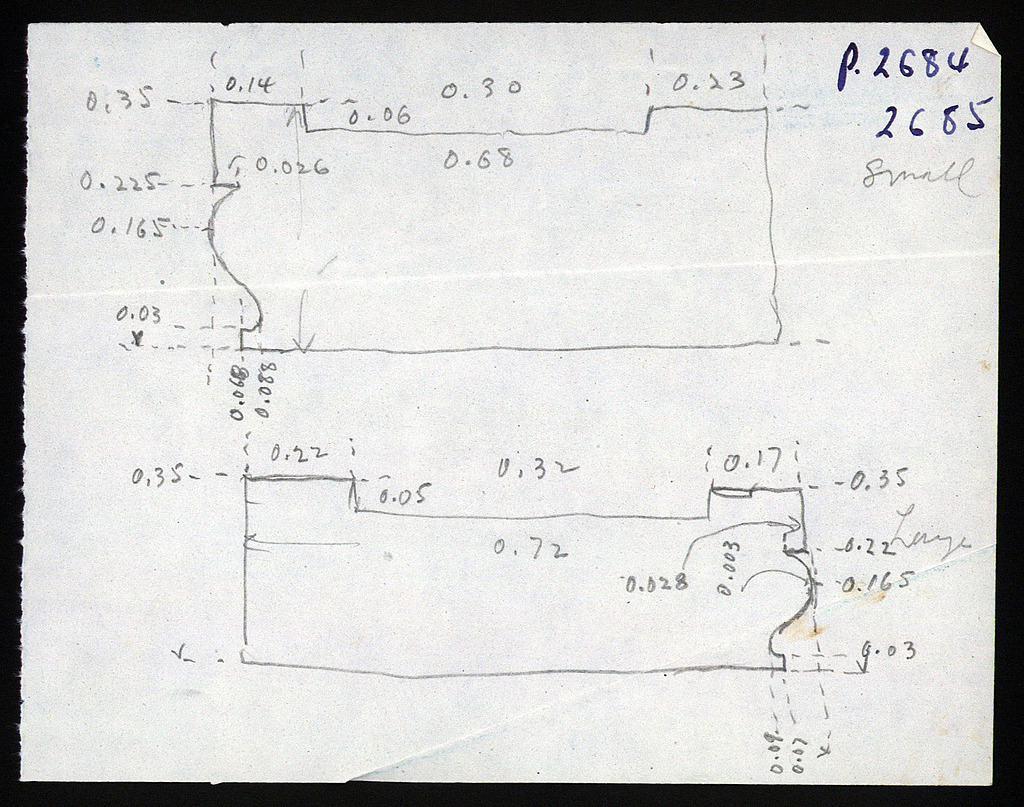 P. 2684
2685
Small
0.14 0.30 0.23
0.35
0.06
0.68
0.026
0.225
0.165
0.03
0.068
0.088
0.22 0.32 0.17
0.35 0.35
0.05
0.72
0.22 Large
0.028 0.003 0.165
0.03
0.09
0.07